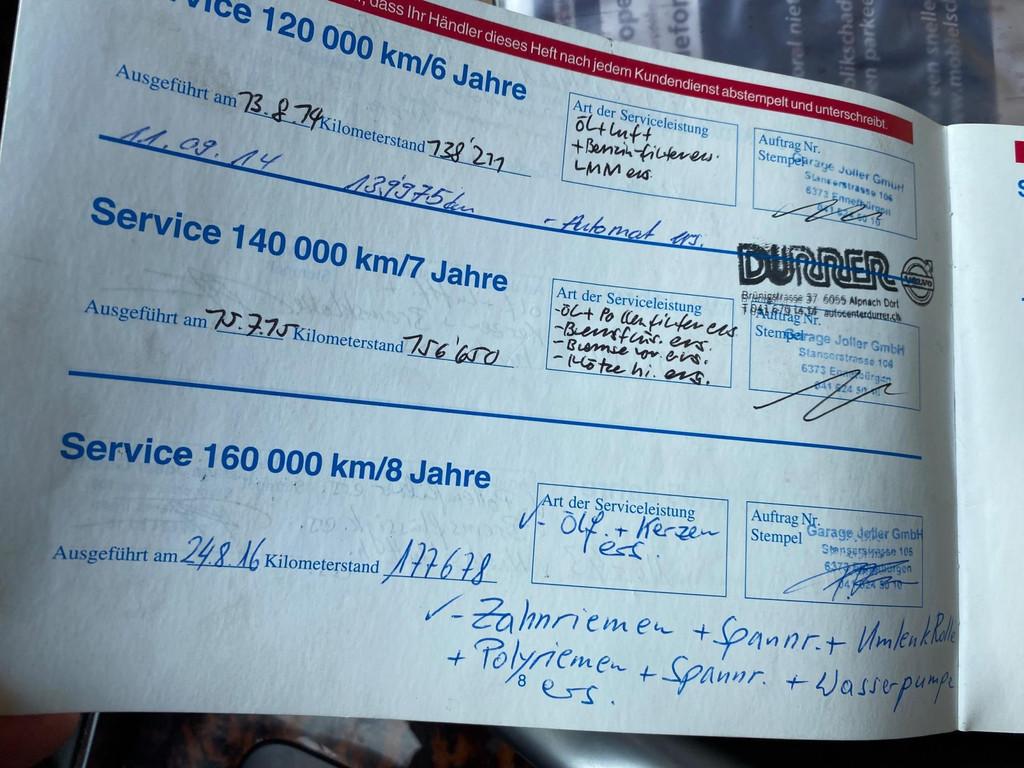 , dass Ihr Händler dieses Heft nach jedem Kundendienst abstempelt und unterschreibt.
vice 120 000 km/6 Jahre
Ausgeführt am 13.8.14 Kilometerstand 138'211
Art der Serviceleistung
Öl + Luft
+ Benzinfilter ers.
LMM ers.
Auftrag Nr.
Stempel
Garage Joller GmbH
Stanserstrasse 106
6373 Ennetbürgen
041 624 50 10
11.09.14 139'975 km - Automat ers.
DURRER
Brünigstrasse 37 6055 Alpnach Dorf
T 041 670 14 34 autocenterdurrer.ch
Service 140 000 km/7 Jahre
Ausgeführt am 15.7.15 Kilometerstand 156'650
Art der Serviceleistung
- Öl + Pollenfilter ers
- Bremsflüs. ers.
- Bremse vor. ers.
- Klötze hi. ers.
Auftrag Nr.
Stempel
Garage Joller GmbH
Stanserstrasse 106
6373 Ennetbürgen
041 624 50 10
Service 160 000 km/8 Jahre
Ausgeführt am 24.8.16 Kilometerstand 177678
Art der Serviceleistung
✓- Ölf. + Kerzen
ers.
Auftrag Nr.
Stempel
Garage Joller GmbH
Stanserstrasse 106
6373 Ennetbürgen
041 624 50 10
✓- Zahnriemen + Spannr. + Umlenk Rolle
+ Polyriemen + Spannr. + Wasserpumpe
ers.
8